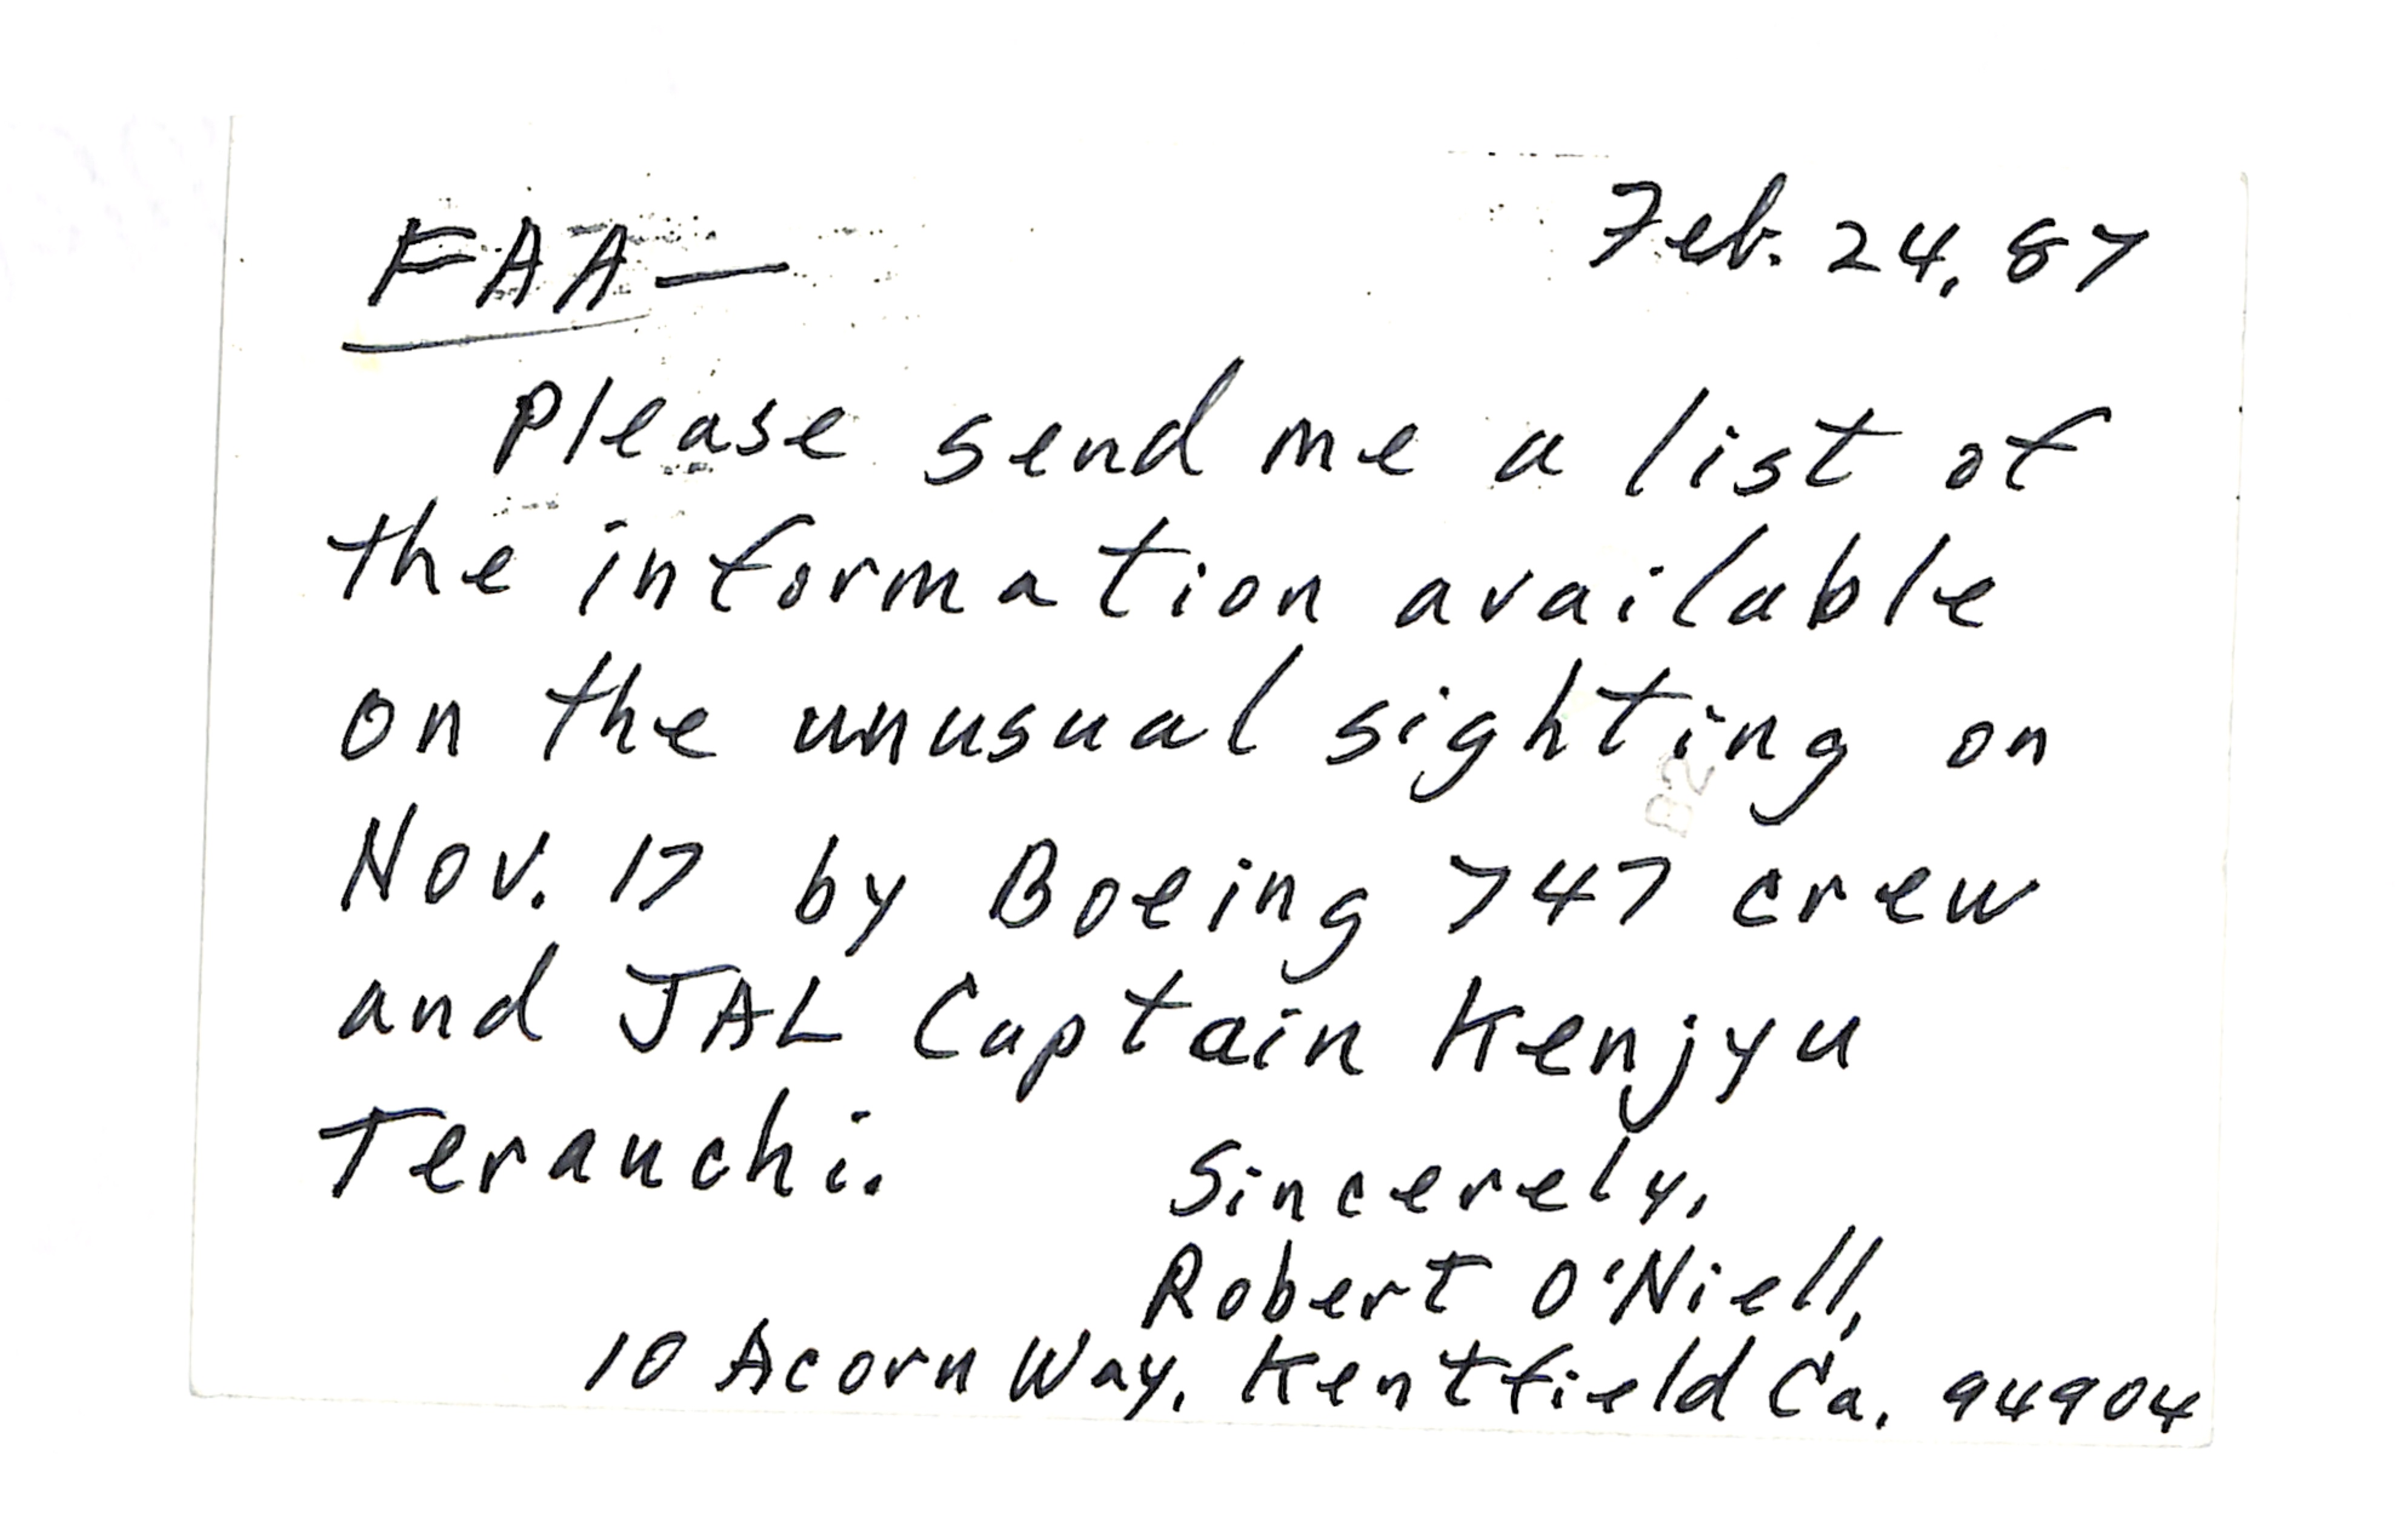 Feb. 24, 87
FAA—
please send me a list of
the information available
on the unusual sighting on
B2
Nov. 17 by Boeing 747 crew
and JAL Captain Kenjyu
Terauchi.
Sincerely,
Robert O'Niell,
10 Acorn Way, Kentfield Ca. 94904